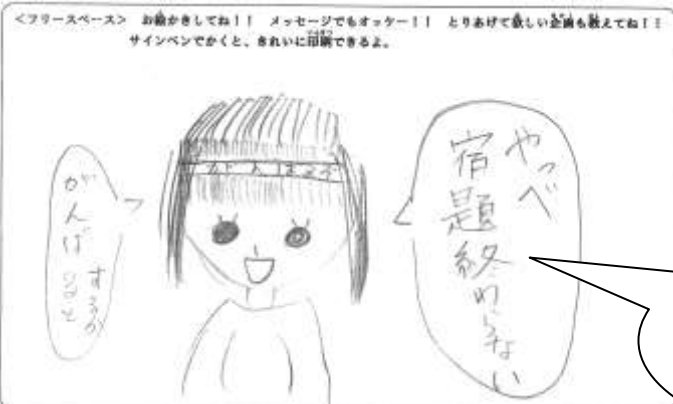 <フリースペース> お絵かきしてね!! メッセージでもオッケー!! とりあげて欲しい企画も教えてね!!
サインペンでかくと、きれいに印刷できるよ。
やっべ
宿題終わらない
がんば